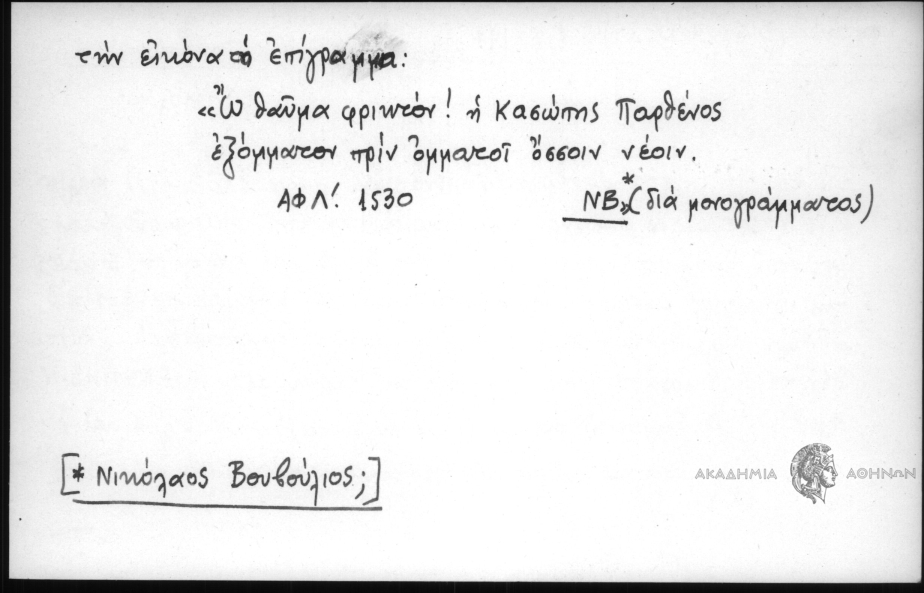 τὴν εἰκόνα τό ἐπίγραμμα:
«Ὢ θαῦμα φρικτόν! ἡ Κασώπης Παρθένος
ἐξόμματον πρίν ὀμματοῖ ὄσσοιν νέοιν.
ΑΦΛ! 1530 ΝΒ»* (διά μονογράμματος)
[* Νικόλαος Βουβούλιος;]
ΑΚΑΔΗΜΙΑ ΑΘΗΝΩΝ